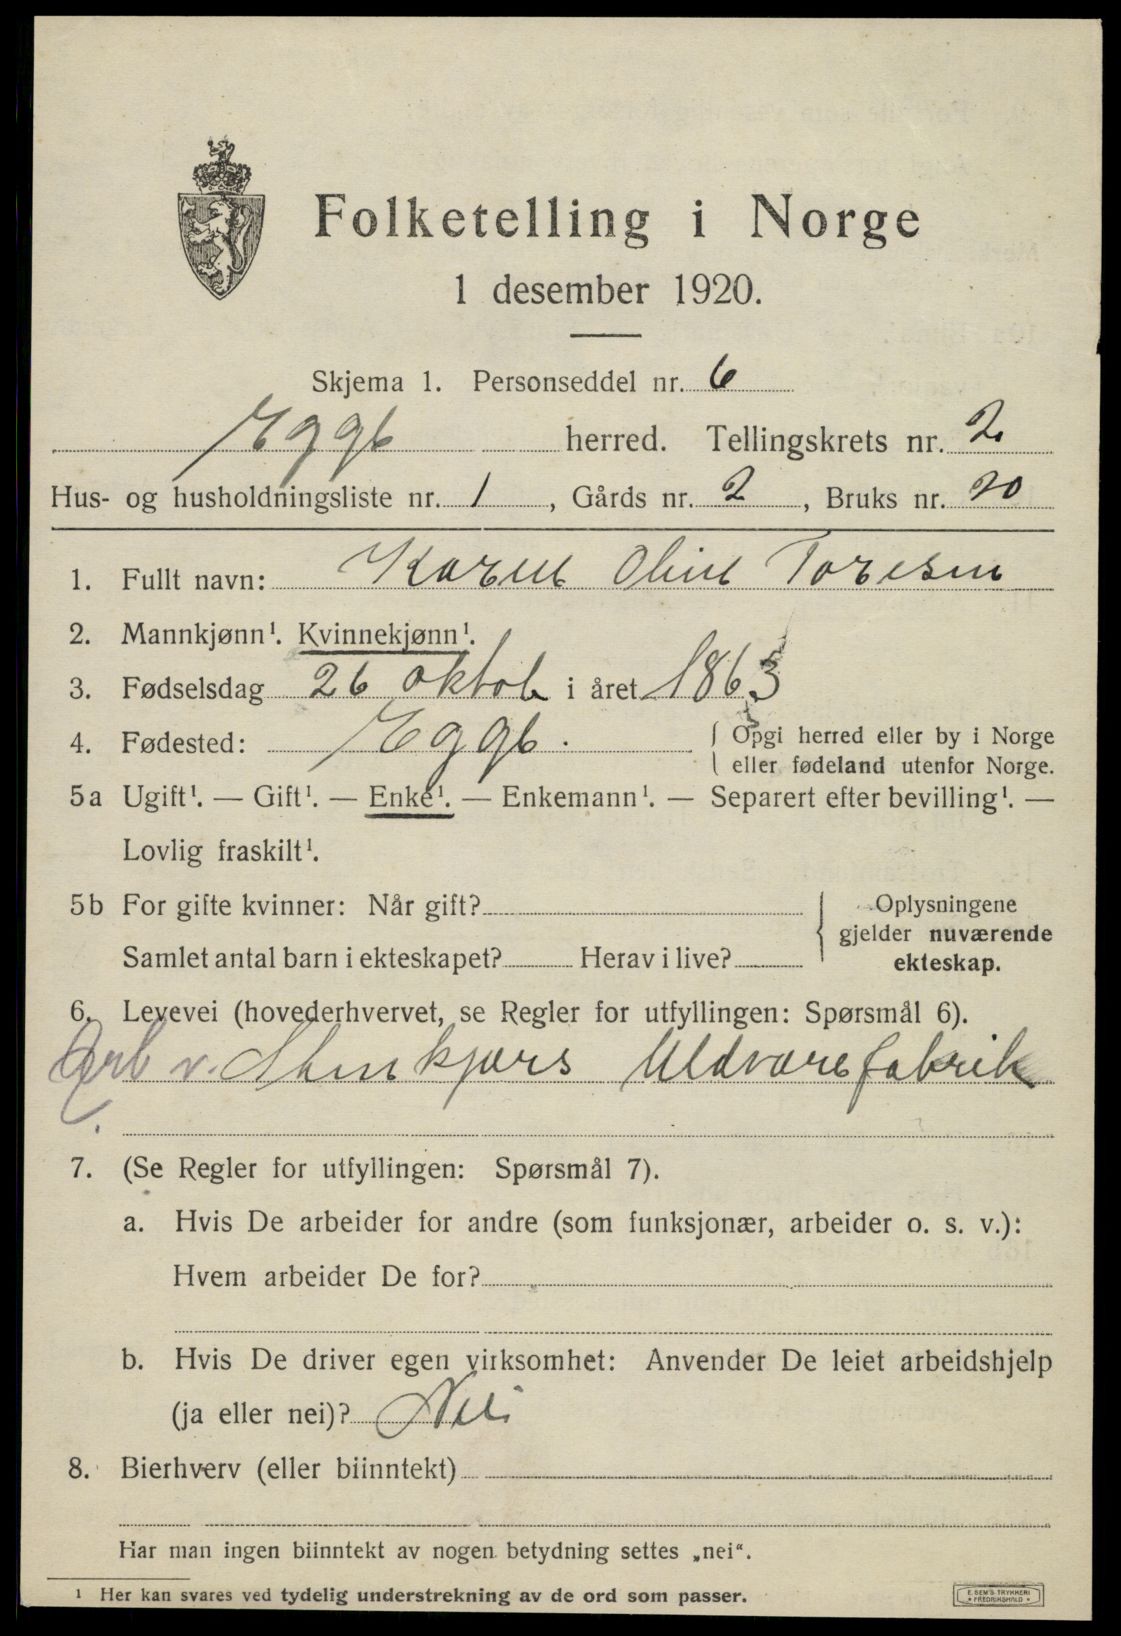 Folketelling i Norge
1 desember 1920.
Skjema 1. Personseddel nr. 6
Egge herred. Tellingskrets nr. 2
Hus- og husholdningsliste nr. 1, Gårds nr. 2, Bruks nr. 20
1. Fullt navn: Karen Oline Toresen
2. Mannkjønn¹. Kvinnekjønn¹.
3. Fødselsdag 26 oktob i året 1863
4. Fødested: Egge. { Opgi herred eller by i Norge
eller fødeland utenfor Norge.
5a Ugift¹. — Gift¹. — Enke¹. — Enkemann¹. — Separert efter bevilling¹. —
Lovlig fraskilt¹.
5b For gifte kvinner: Når gift? { Oplysningene
gjelder nuværende
Samlet antal barn i ekteskapet? Herav i live? ekteskap.
6. Levevei (hovederhvervet, se Regler for utfyllingen: Spørsmål 6).
Arb v. Stenkjærs Uldvarefabrik
7. (Se Regler for utfyllingen: Spørsmål 7).
a. Hvis De arbeider for andre (som funksjonær, arbeider o. s. v.):
Hvem arbeider De for?
b. Hvis De driver egen virksomhet: Anvender De leiet arbeidshjelp
(ja eller nei)? Nei
8. Bierhverv (eller biinntekt)
Har man ingen biinntekt av nogen betydning settes „nei“.
¹ Her kan svares ved tydelig understrekning av de ord som passer.
E. SEM'S TRYKKERI
• FREDRIKSHALD •